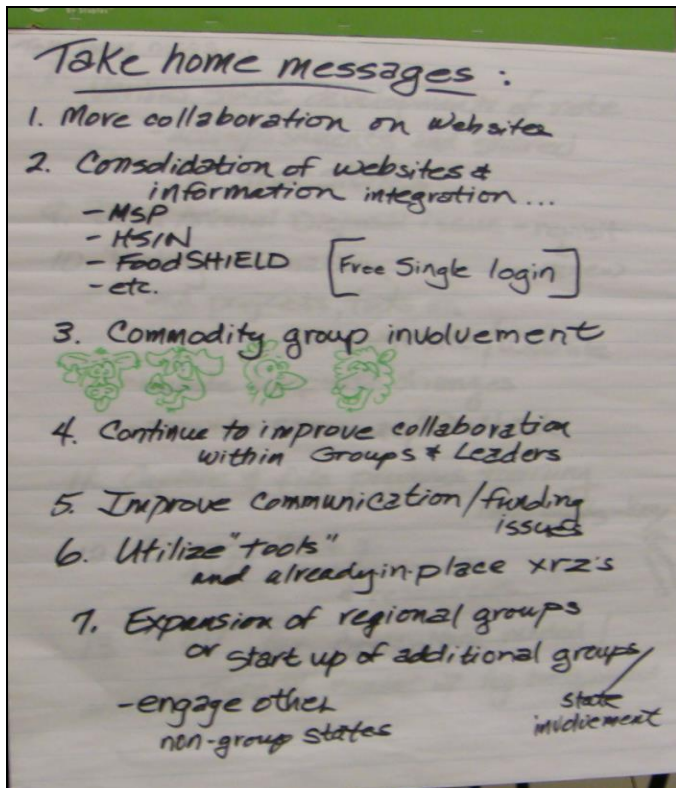 Take home messages :
1. More collaboration on websites
2. Consolidation of websites &
information integration...
- MSP
- HSIN
- FoodSHIELD [Free Single login]
- etc.
3. Commodity group involvement
4. Continue to improve collaboration
within Groups & Leaders
5. Improve communication/funding
issues
6. Utilize "tools"
and already in-place xrz's
7. Expansion of regional groups
or start up of additional groups/
- engage other
non-group states
state
involvement